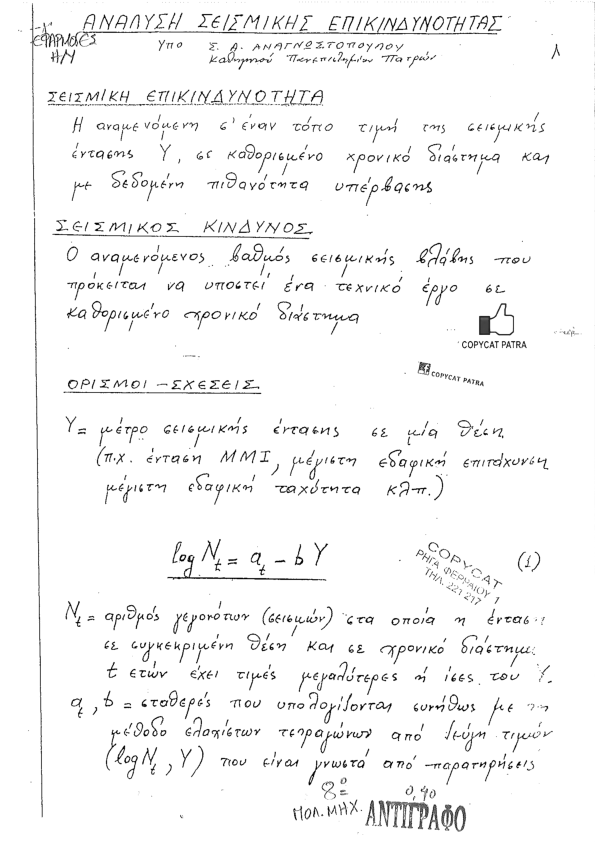 ΑΝΑΛΥΣΗ ΣΕΙΣΜΙΚΗΣ ΕΠΙΚΙΝΔΥΝΟΤΗΤΑΣ
ΕΦΑΡΜΟΓΕΣ
Η/Υ
ΥΠΟ Σ. Α. ΑΝΑΓΝΩΣΤΟΠΟΥΛΟΥ
Καθηγητού Πανεπιστημίου Πατρών
1
ΣΕΙΣΜΙΚΗ ΕΠΙΚΙΝΔΥΝΟΤΗΤΑ
Η αναμενόμενη σ' έναν τόπο τιμή της σεισμικής
έντασης Υ, σε καθορισμένο χρονικό διάστημα και
με δεδομένη πιθανότητα υπέρβασης
ΣΕΙΣΜΙΚΟΣ ΚΙΝΔΥΝΟΣ
Ο αναμενόμενος βαθμός σεισμικής βλάβης που
πρόκειται να υποστεί ένα τεχνικό έργο σε
καθορισμένο χρονικό διάστημα
COPYCAT PATRA
COPYCAT PATRA
ΟΡΙΣΜΟΙ - ΣΧΕΣΕΙΣ
Υ = μέτρο σεισμικής έντασης σε μία θέση
(π.χ. ένταση ΜΜΙ, μέγιστη εδαφική επιτάχυνση
μέγιστη εδαφική ταχύτητα κλπ.)
log Nt = at - b Y (1)
COPYCAT
ΡΗΓΑ ΦΕΡΡΑΙΟΥ 1
ΤΗΛ. 221 217
Nt = αριθμός γεγονότων (σεισμών) στα οποία η έντασ
σε συγκεκριμένη θέση και σε χρονικό διάστημ
t ετών έχει τιμές μεγαλύτερες ή ίσες του Υ.
at, b = σταθερές που υπολογίζονται συνήθως με τη
μέθοδο ελαχίστων τετραγώνων από ζεύγη τιμών
(log Nt, Y) που είναι γνωστά από παρατηρήσεις
8º 0,40
ΠΟΛ. ΜΗΧ. ΑΝΤΙΓΡΑΦΟ